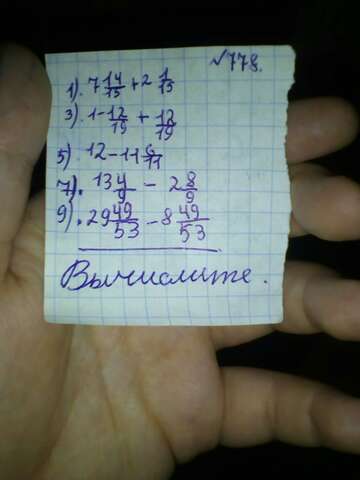 №778.
1). 7 14/15 + 2 1/15
3). 1 - 12/19 + 12/19
5). 12 - 11 6/11
7). 13 4/9 - 2 8/9
9). 29 49/53 - 8 49/53
Вычислите.